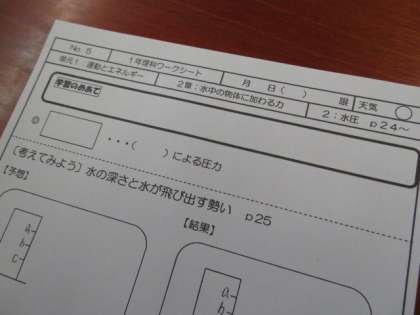 No. 5 1年理科ワークシート 月 日( ) 限 天気
単元1 運動とエネルギー 2章:水中の物体に加わる力 2:水圧 p24〜
学習のめあて
・・・( )による圧力
〔考えてみよう〕水の深さと水が飛び出す勢い p25
【予想】 【結果】
a
b
c
a
b